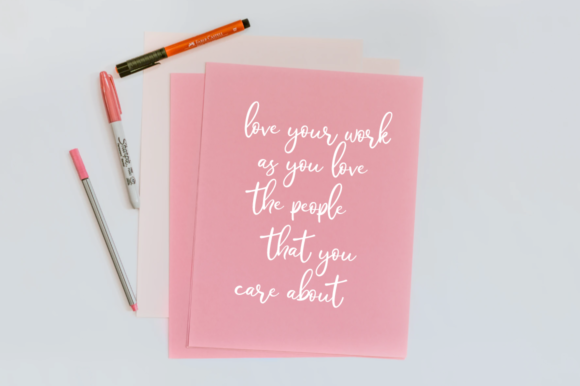 love your work
as you love
the people
that you
care about